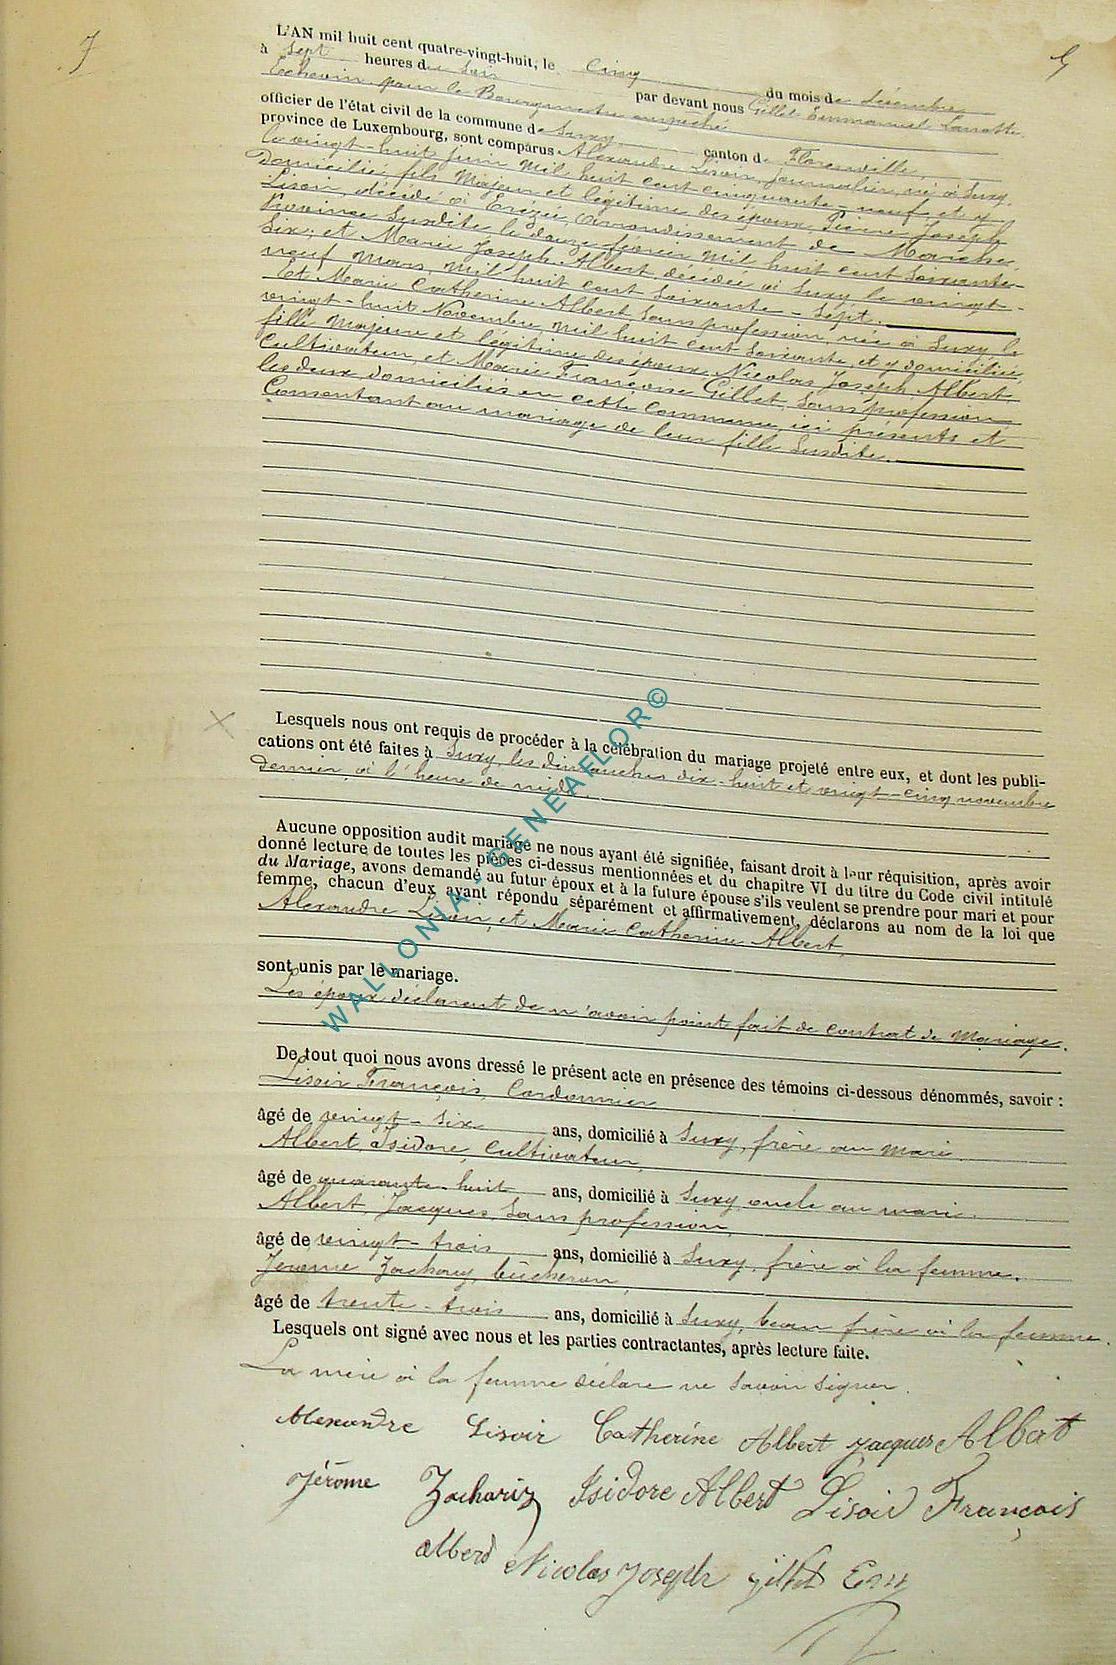 7
L'AN mil huit cent quatre-vingt-huit, le cinq du mois de décembre
à Sept heures du Soir par devant nous Gillet Emmanuel
Echevin pour le Bourgmestre empeché
officier de l'état civil de la commune de Suxy canton de Florenville,
province de Luxembourg, sont comparus Alexandre Lisoir, Journalier, né à Suxy,
le vingt-huit Juin mil huit cent cinquante-neuf et y
Domicilié, fils Majeur et légitime des époux Pierre Joseph
Lisoir, décédé à Erézée, arrondissement de Marche,
Province Susdite le douze février mil huit cent Soixante-
Six; et Marie Joseph Albert, décédée à Suxy le vingt-
neuf Mars, mil huit cent Soixante-Sept.
Et Marie Catherine Albert Sans profession, née à Suxy, le
vingt-huit Novembre, mil huit cent Soixante, et y domiciliée,
fille Majeure et légitime des époux Nicolas Joseph Albert
Cultivateur, et Marie Françoise Gillet, Sans profession
les deux domiciliés en cette Commune, ici présents et
Consentant au mariage de leur fille Susdite.
Lesquels nous ont requis de procéder à la célébration du mariage projeté entre eux, et dont les publi-
cations ont été faites à Suxy, les dimanches dix-huit et vingt-cinq novembre
dernier, à l'heure de midi.
Aucune opposition audit mariage ne nous ayant été signifiée, faisant droit à leur réquisition, après avoir
donné lecture de toutes les pièces ci-dessus mentionnées et du chapitre VI du titre du Code civil intitulé
du Mariage, avons demandé au futur époux et à la future épouse s'ils veulent se prendre pour mari et pour
femme, chacun d'eux ayant répondu séparément et affirmativement, déclarons au nom de la loi que
Alexandre Lisoir, et Marie Catherine Albert,
sont unis par le mariage.
Les époux déclarent de n'avoir point fait de contrat de Mariage.
De tout quoi nous avons dressé le présent acte en présence des témoins ci-dessous dénommés, savoir :
Lisoir François, Cordonnier
âgé de vingt-six ans, domicilié à Suxy, frère au mari
Albert Isidore, Cultivateur,
âgé de quarante-huit ans, domicilié à Suxy, oncle au mari.
Albert, Jacques, Sans profession,
âgé de vingt-trois ans, domicilié à Suxy, frère à la femme.
Jerome Zachary, bûcheron,
âgé de trente-trois ans, domicilié à Suxy, beau frère à la femme.
Lesquels ont signé avec nous et les parties contractantes, après lecture faite.
La mère à la femme déclare ne Savoir Signer.
Alexandre Lisoir Catherine Albert Jacques Albert
Jérome Zachariy Isidore Albert Lisoir François
albert Nicolas Joseph gillet Em
WALLONIA - GENEAFLOR©